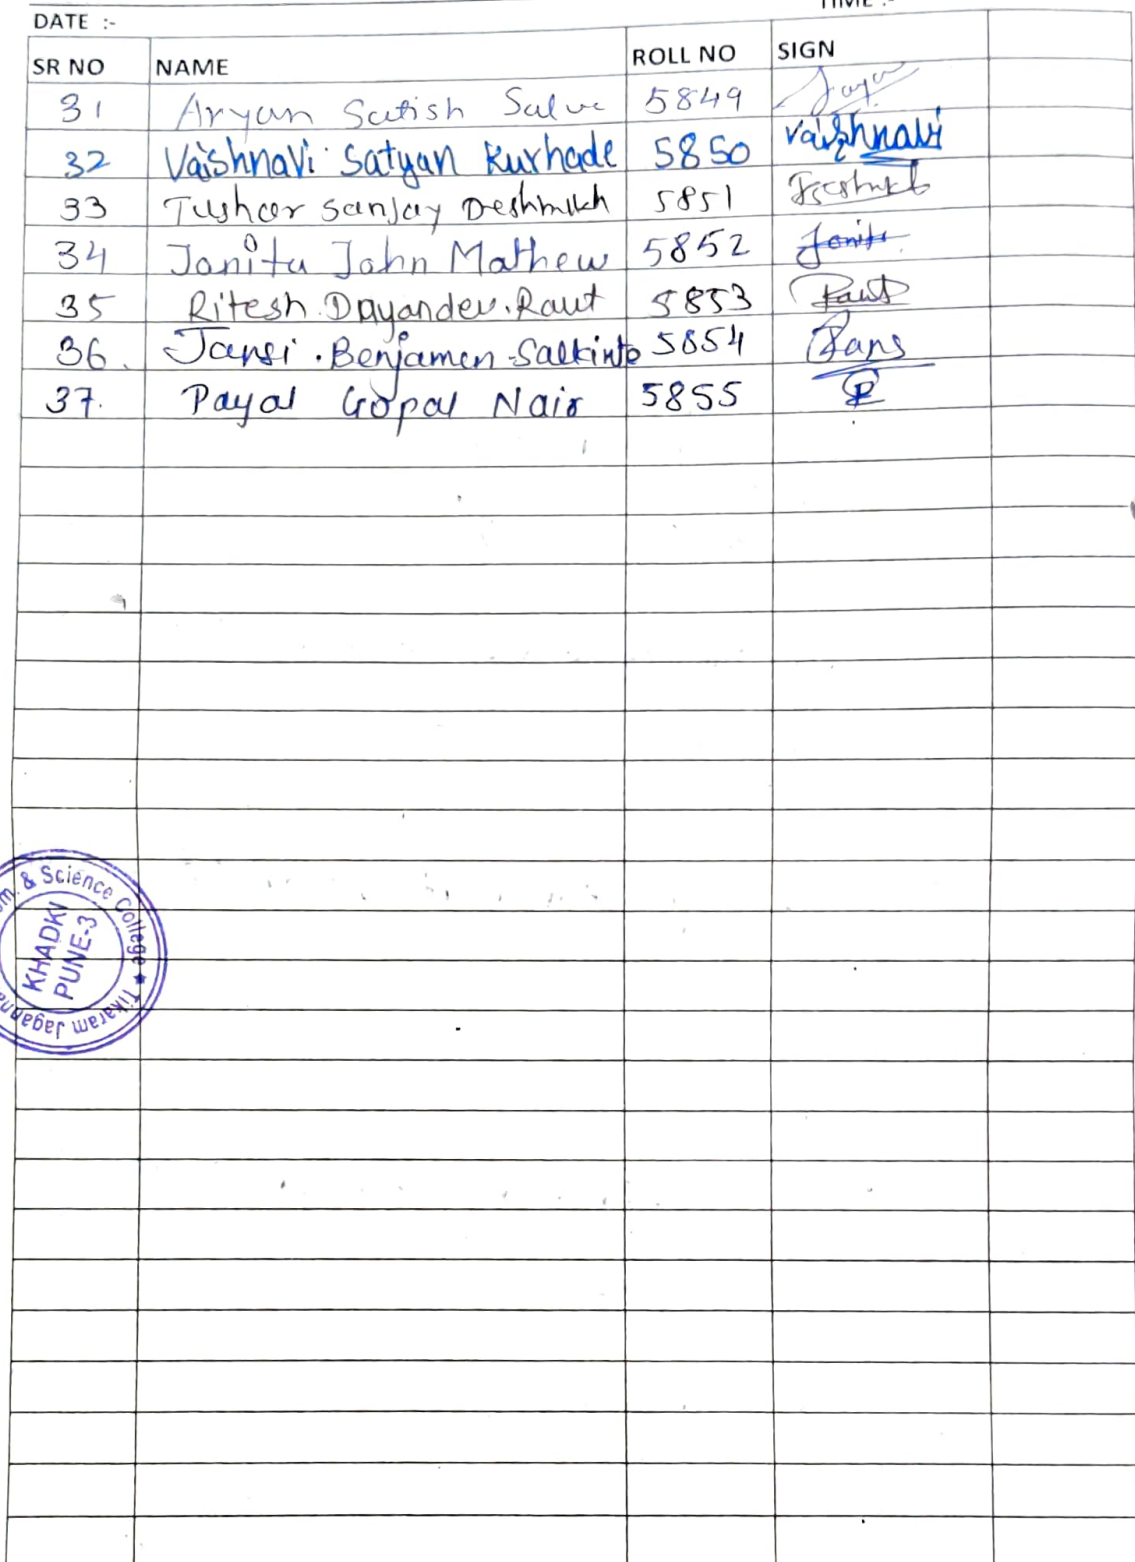 TIME :-
DATE :-
SR NO NAME ROLL NO SIGN
31 Aryan Satish Salve 5849
32 Vaishnavi Satyan Kurhade 5850 Vaishnavi
33 Tushar Sanjay Deshmukh 5851
34 Jonita John Mathew 5852 Jonita
35 Ritesh Dayandev. Raut 5853 Raut
36. Jansi . Benjamen 5854 Jans
37. Payal Gopal Nair 5855 P
m. & Science College ★ Tikaram Jaganna
KHADKI
PUNE-3